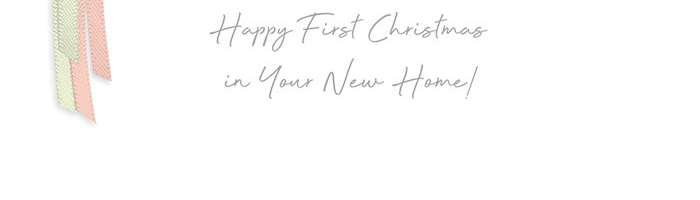 Happy First Christmas
in Your New Home!